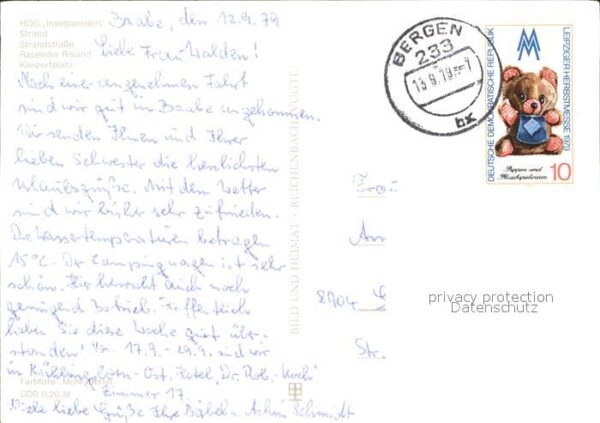 HOG „Inselparadies"
Strand
Strandstraße
Rasender Roland
Konzertplatz
Baabe, den 12.9.79
Liebe Frau Walden!
Nach einer angenehmen Fahrt
sind wir gut in Baabe angekommen.
Wir senden Ihnen und Ihrer
lieben Schwester die herzlichsten
Urlaubsgrüße. Mit dem Wetter
sind wir bisher sehr zufrieden.
Die Wassertemperaturen betragen
15°C. Der Campingwagen ist sehr
schön. Hier herrscht auch noch
genügend Betrieb. Hoffentlich
haben Sie diese Woche gut über-
standen! 17.9. - 29.9. sind wir
in Kühlungsborn - Ost, Hotel „Dr. Rob. Koch"
Zimmer 17.
Viele liebe Grüße Ihre Bärbel u. Achim Schmidt
DDR 0,20 M
BILD UND HEIMAT
BERGEN
233
13.9.79
bx
DEUTSCHE DEMOKRATISCHE REPUBLIK
LEIPZIGER HERBSTMESSE 1979
Puppen und
Plüschspielwaren
10
Frau
An
Str.
privacy protection
Datenschutz